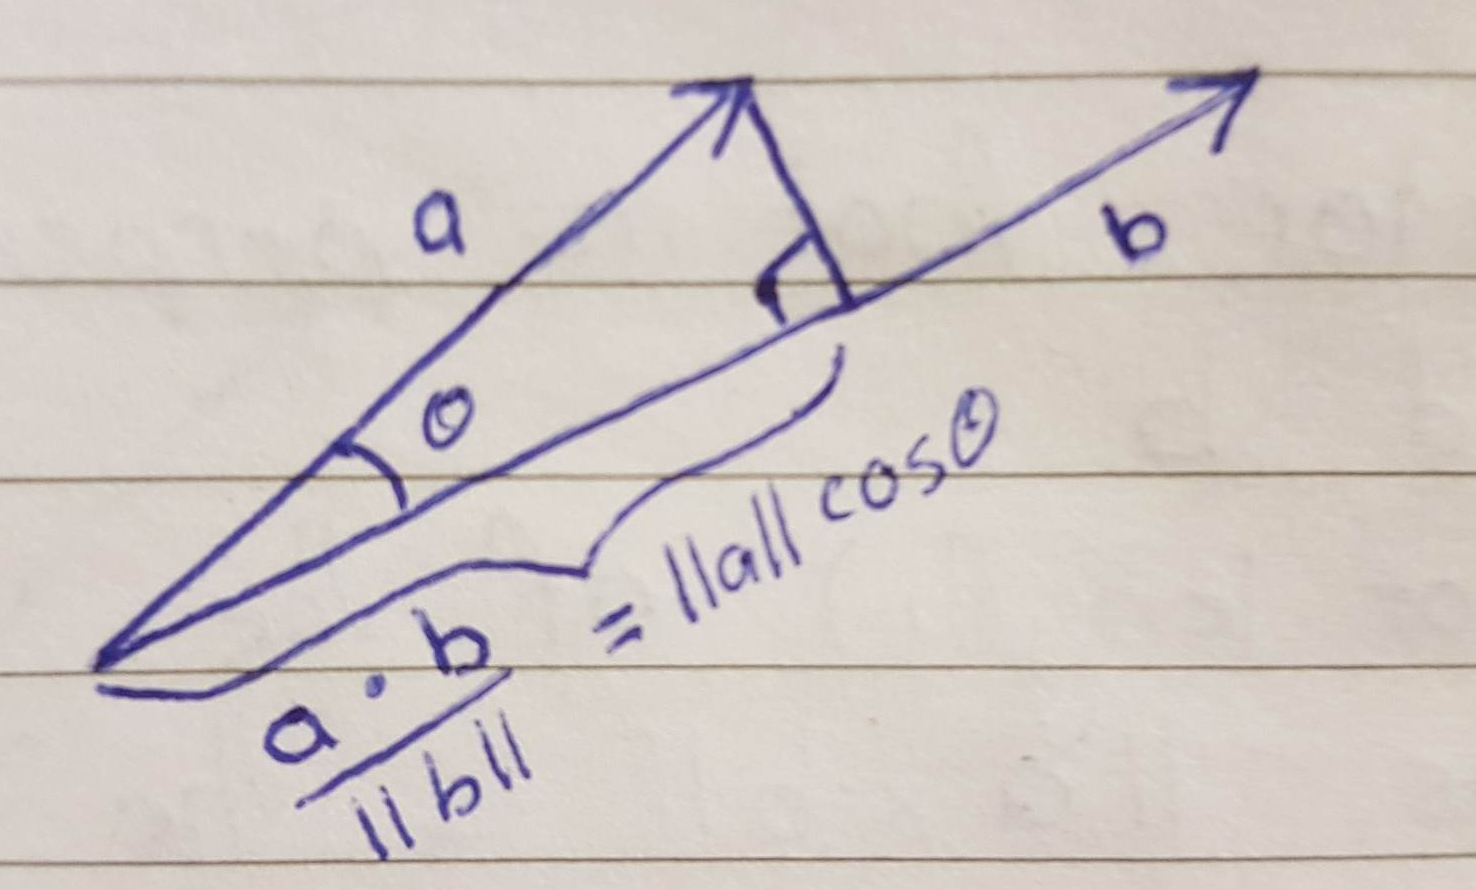 a
b
θ
a · b
= ||a|| cosθ
||b||